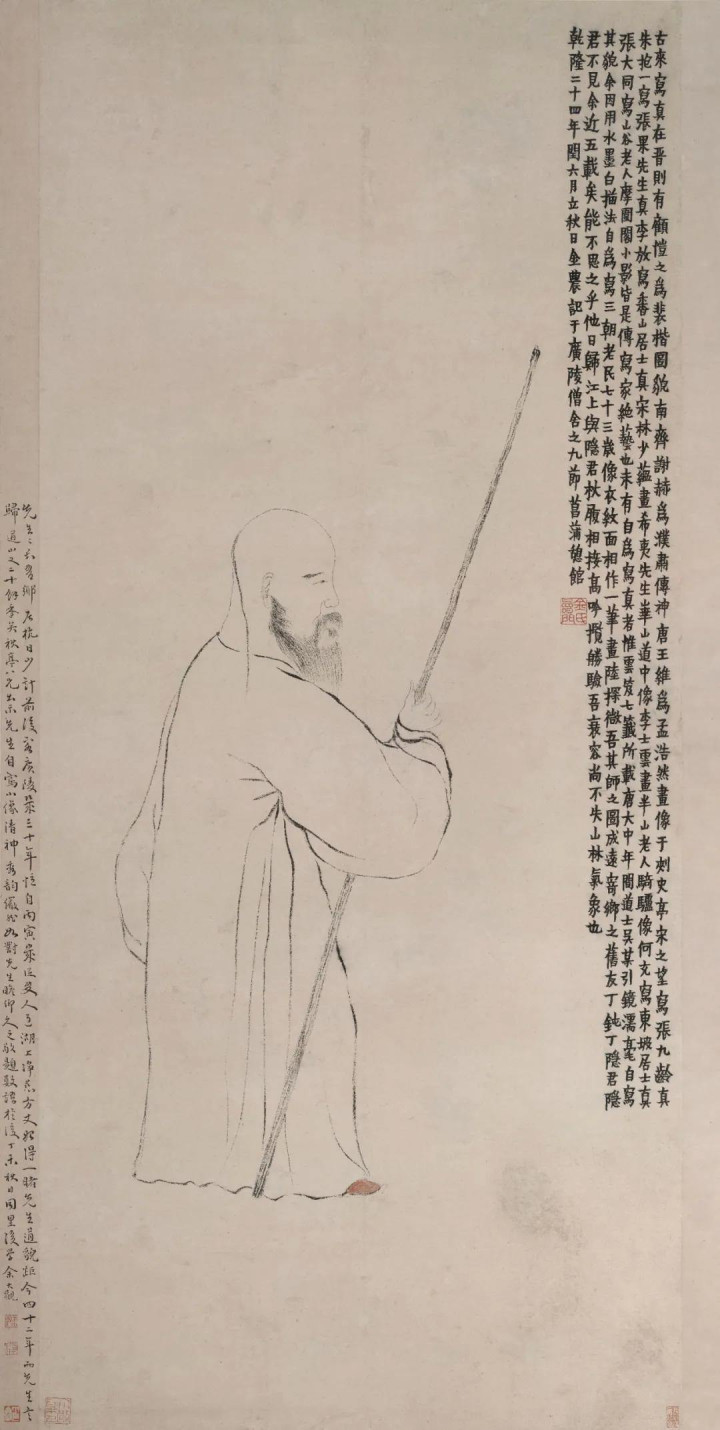 古來寫真在晋則有顧愷之為裴楷圖貌南齊謝赫為濮肅傳神唐王維為孟浩然畫像于刺史亭宋之望寫張九齡真
朱抱一寫張果先生真李放寫香山居士真宋林少蘊畫希夷先生華山道中像李士雲畫半山老人騎驢像何充寫東坡居士真
張大同寫山谷老人摩圍閣小影皆是傳寫家絶藝也未有自為寫真者惟雲笈七籤所載唐大中年間道士吴某引鏡濡毫自寫
其貌余因用水墨白描法自為寫三朝老民七十三歲像衣紋面相作一筆畫陸探微吾其師之圖成遠寄鄉之舊友丁鈍丁隱君隱
君不見余近五載矣能不思之乎他日歸江上與隱君杖履相接高吟攬勝驗吾衰容尚不失山林氣象也
乾隆二十四年閏六月立秋日金農記于廣陵僧舍之九節菖蒲憩館
先生吾鄉 杭日少計前後客廣陵幾三十年憶自丙寅 人至湖上净慈方丈 得一瞻先生道貌距今四十二年而先生之
歸道山又二十餘年矣秋 八兄出示先生自寫小像清神秀韵儼然如對先生瞻仰久之敬題數語於後丁未秋日同里後學余大觀